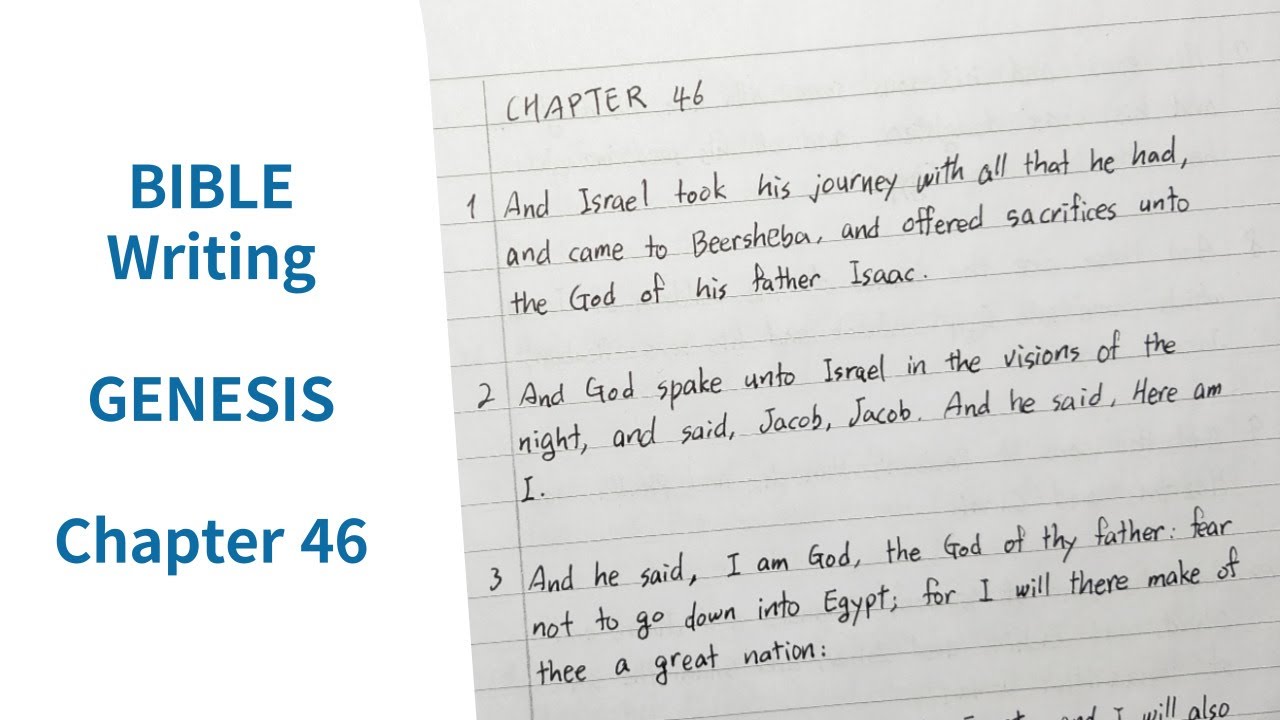 BIBLE
Writing
GENESIS
Chapter 46
CHAPTER 46
1 And Israel took his journey with all that he had,
and came to Beersheba, and offered sacrifices unto
the God of his father Isaac.
2 And God spake unto Israel in the visions of the
night, and said, Jacob, Jacob. And he said, Here am
I.
3 And he said, I am God, the God of thy father: fear
not to go down into Egypt; for I will there make of
thee a great nation:
and I will also